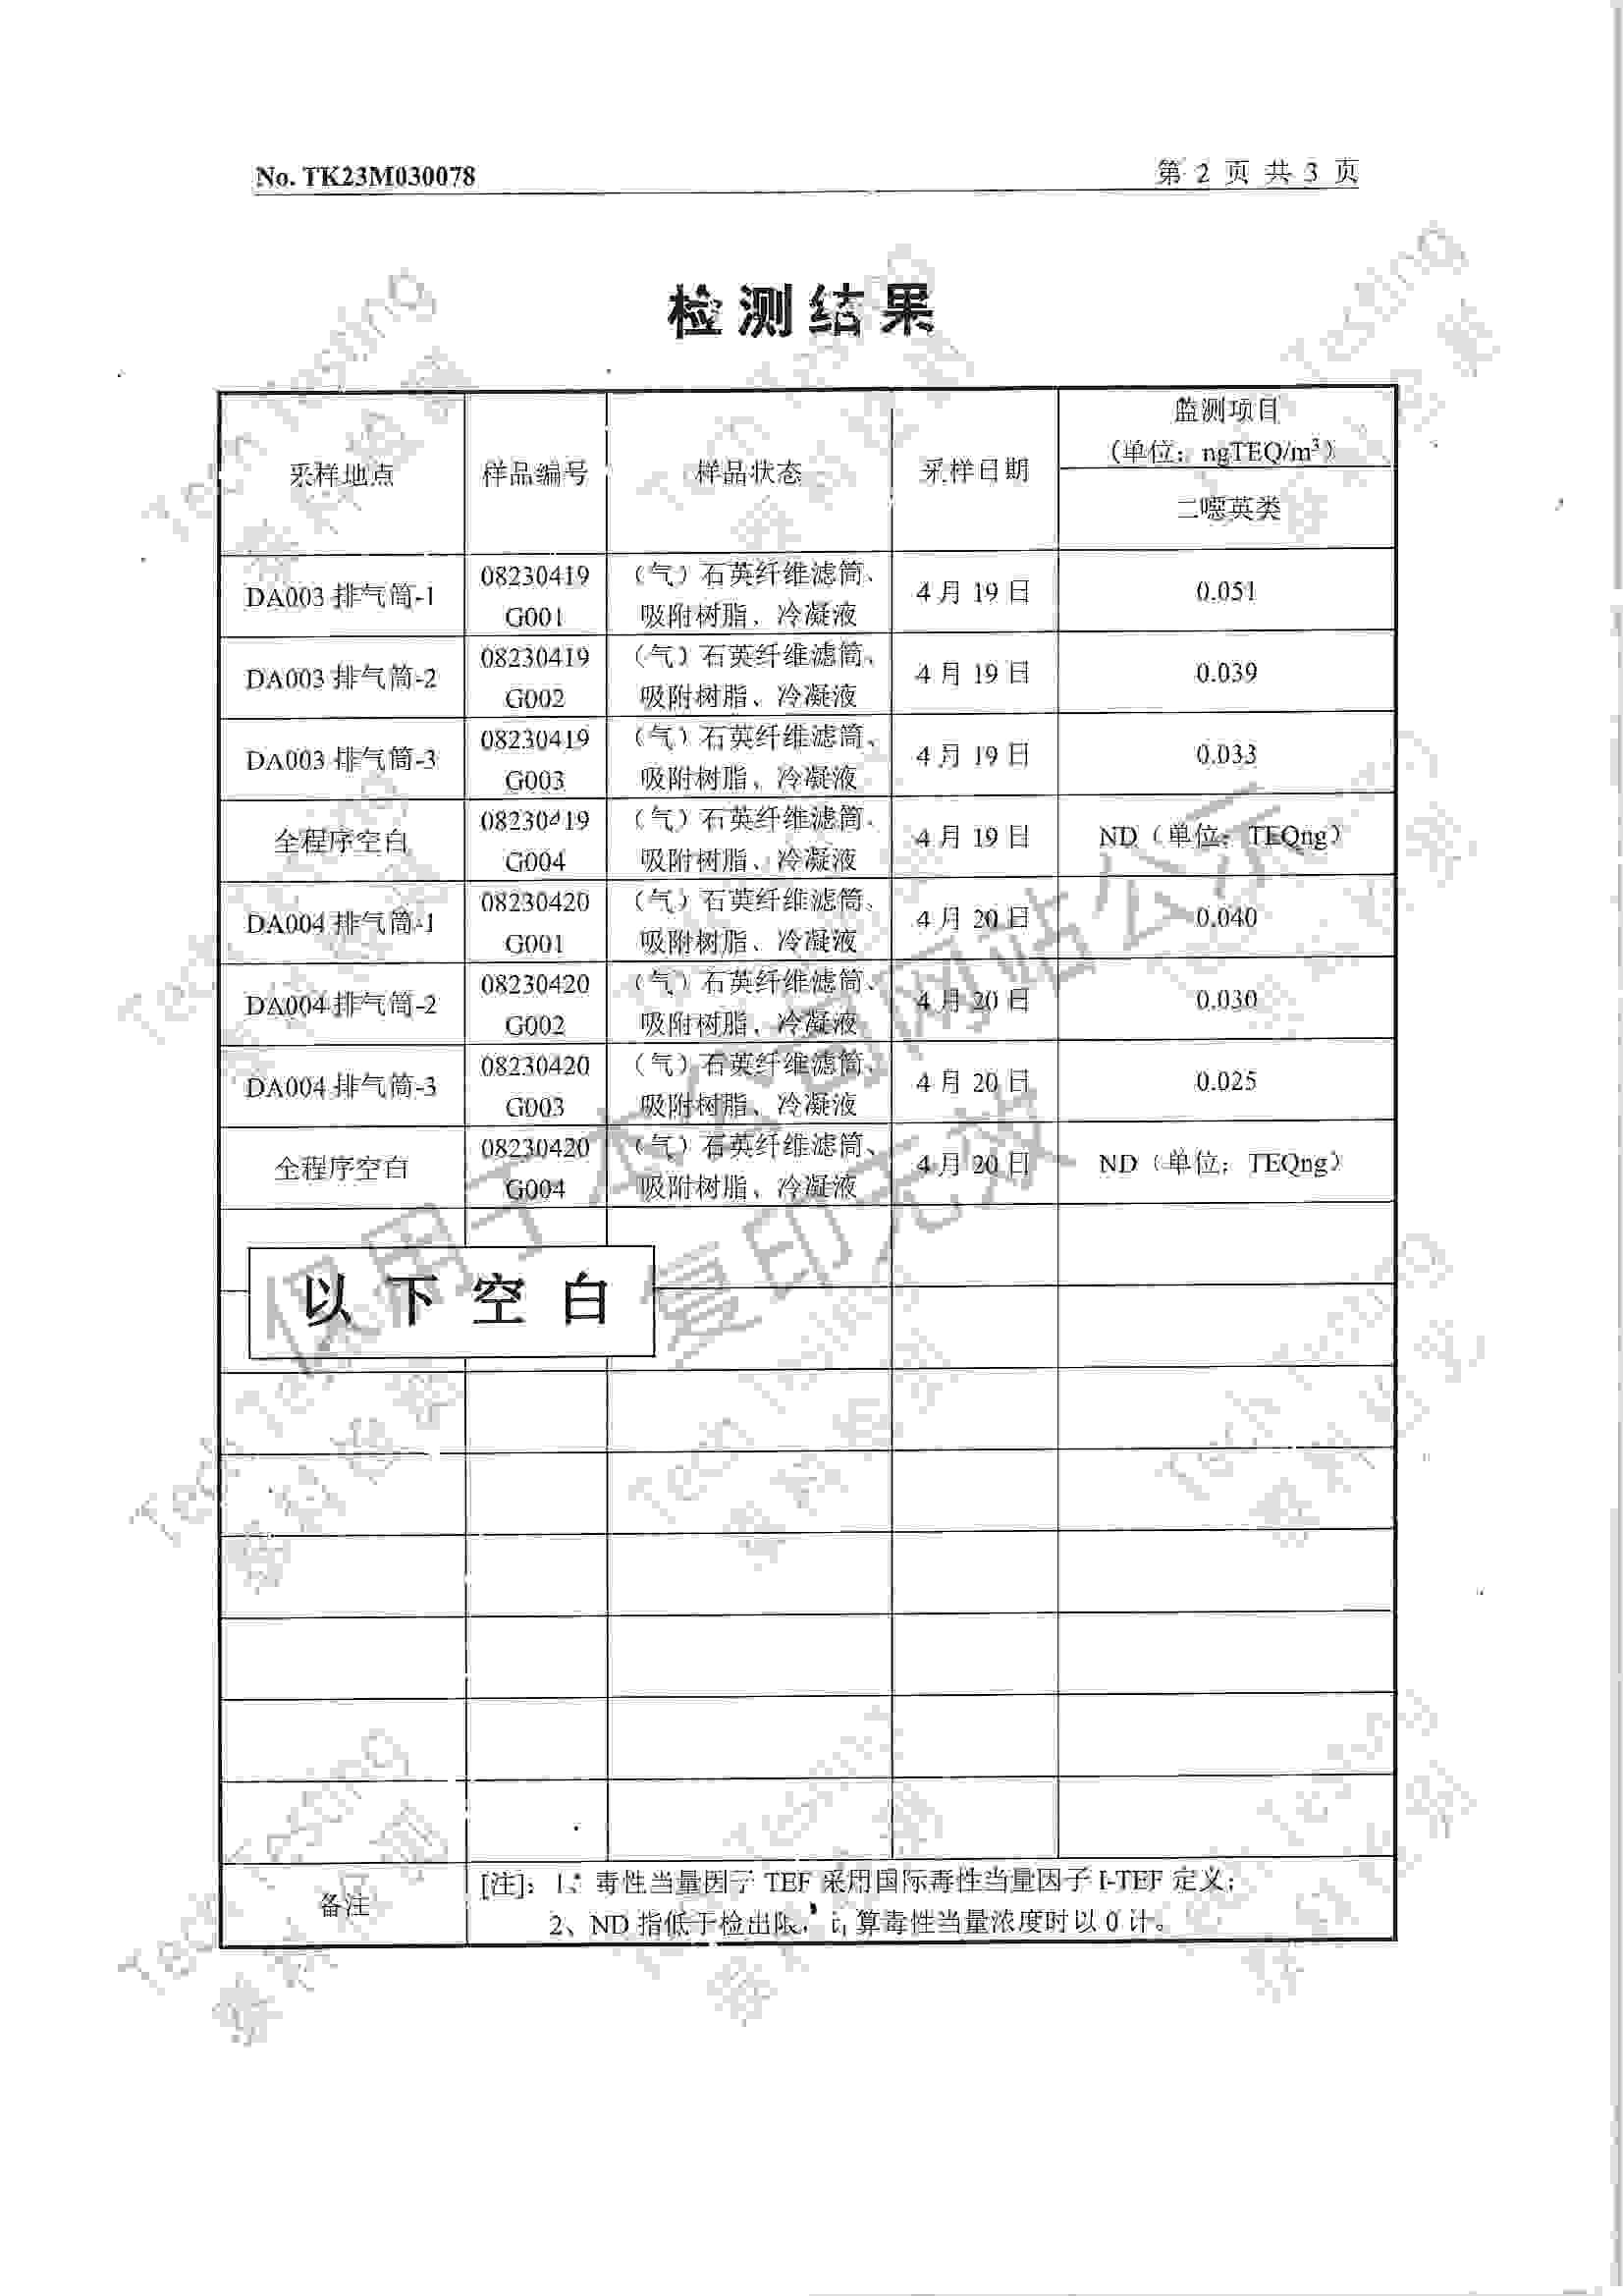 No. TK23M030078
第 2 页 共 3 页
检测结果
采样地点
样品编号
样品状态
采样日期
监测项目
(单位：ngTEQ/m³)
二噁英类
DA003 排气筒-1
08230419
G001
（气）石英纤维滤筒、
吸附树脂、冷凝液
4 月 19 日
0.051
DA003 排气筒-2
08230419
G002
（气）石英纤维滤筒、
吸附树脂、冷凝液
4 月 19 日
0.039
DA003 排气筒-3
08230419
G003
（气）石英纤维滤筒、
吸附树脂、冷凝液
4 月 19 日
0.033
全程序空白
08230419
G004
（气）石英纤维滤筒、
吸附树脂、冷凝液
4 月 19 日
ND（单位：TEQng）
DA004 排气筒-1
08230420
G001
（气）石英纤维滤筒、
吸附树脂、冷凝液
4 月 20 日
0.040
DA004 排气筒-2
08230420
G002
（气）石英纤维滤筒、
吸附树脂、冷凝液
4 月 20 日
0.030
DA004 排气筒-3
08230420
G003
（气）石英纤维滤筒、
吸附树脂、冷凝液
4 月 20 日
0.025
全程序空白
08230420
G004
（气）石英纤维滤筒、
吸附树脂、冷凝液
4 月 20 日
ND（单位：TEQng）
以下空白
备注
[注]：1、毒性当量因子 TEF 采用国际毒性当量因子 I-TEF 定义；
2、ND 指低于检出限，计算毒性当量浓度时以 0 计。
仅用于本公司网站公示
复印无效
Tech Testing
Tech Testing
Tech Testing
Tech Testing
Tech Testing
Tech Testing
Tech Testing